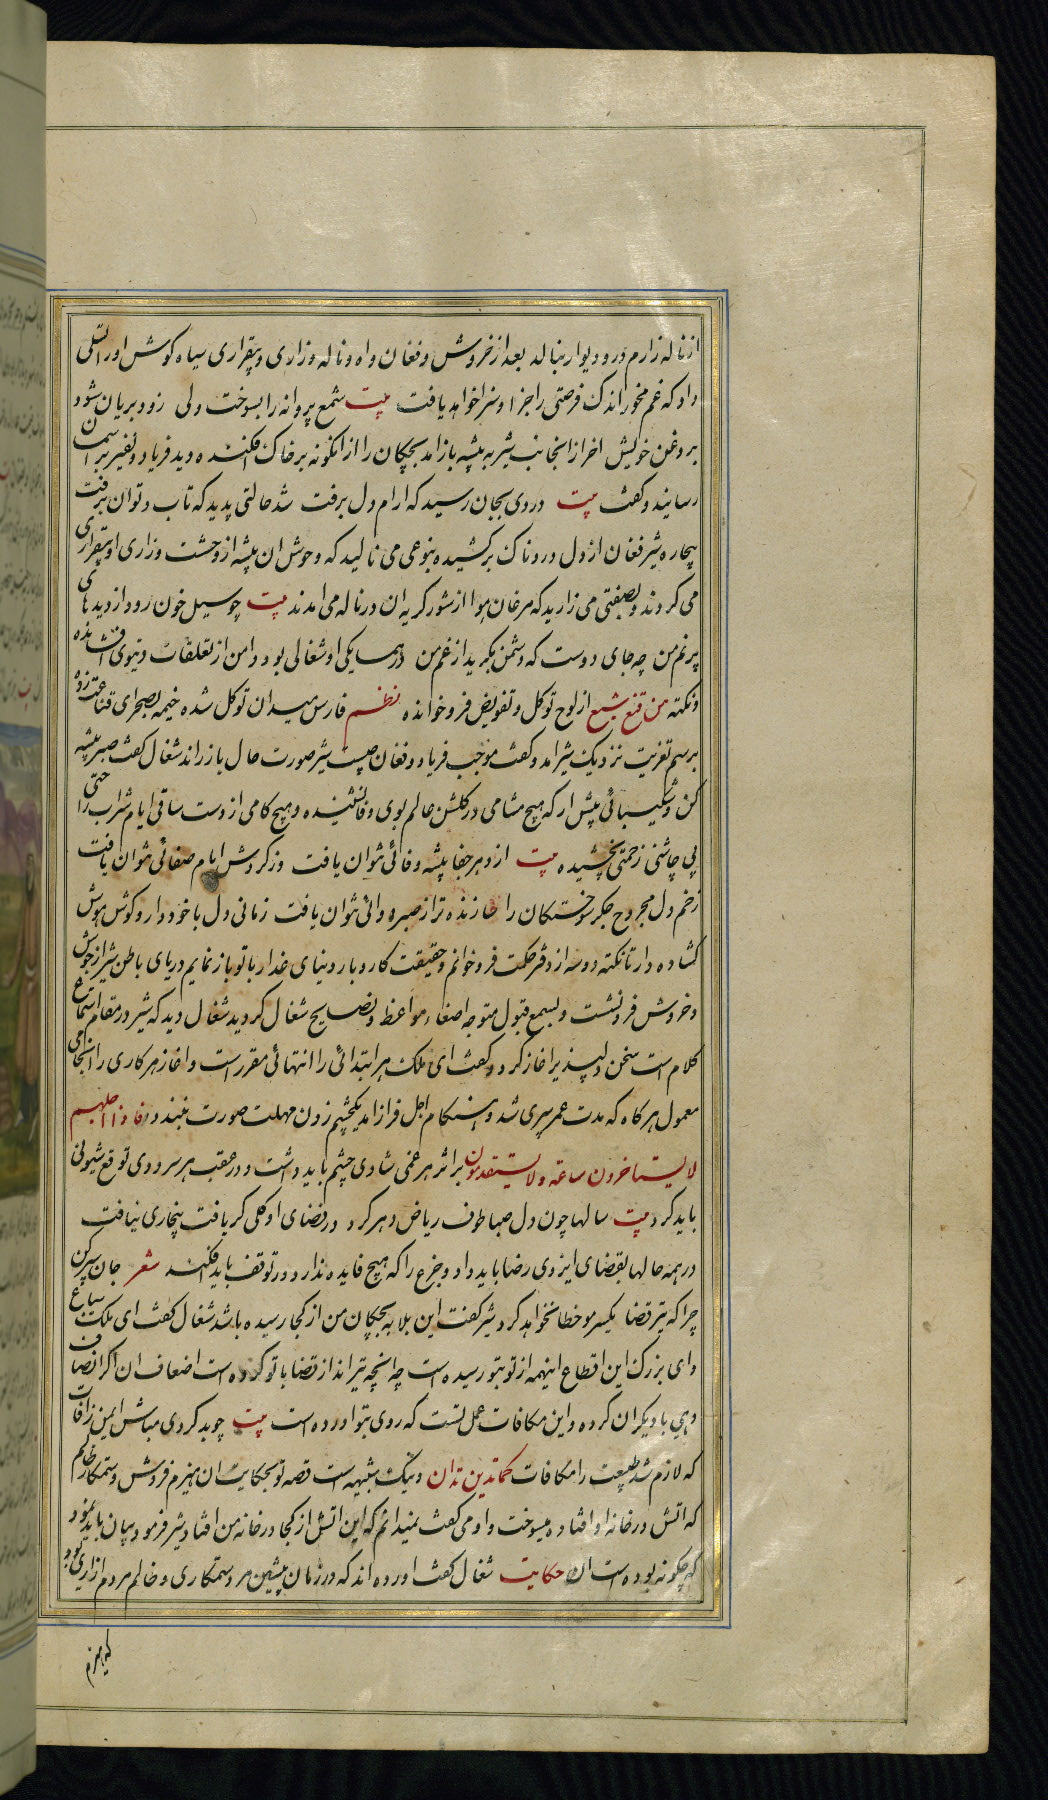 از ناله زارم در و دیوار بنالد بعد از خروش و فغان و اه و ناله و زاری و بیقراری سیاه کوش او را تسلی
داد که غم مخور اندک فرصتی را جزا و سزا خواهد یافت بیت شمع پروانه را بسوخت ولی زود بریان شود
بروغن خویش اخر از انجانب شیر به بیشه باز امد بچکان را از انکونه بر خاک افکنده دید فریاد و نفیر بر اسمان
رسانید و کفت بیت دردی بجان رسید که ارام دل برفت شد حالتی پدید که تاب و توان برفت
بیچاره شیر فغان از دل دردناک برکشیده بنوعی می نالید که وحوش ان بیشه از وحشت و زاری او بیقراری
می کردند و بصفتی می زارید که مرغان هوا از شور کریه ان در ناله می امدند بیت چو سیل خون رود از دیدهای
پر نم من چه جای دوست که دشمن بکرید از غم من در همسایکی او شغالی بود دامن از تعلقات دنیوی افشانده
و نکته من قنع شبع از لوح توکل و تفویض فرو خوانده نظم فارس میدان توکل شده خیمه بصحرای قناعت زده
برسم تعزیت نزدیک شیر امد و کفت موجب فریاد و فغان چیست شیر صورت حال باز راند شغال کفت صبر پیشه
کن و شکیبائی پیش ار که هیچ مشامی در کلشن عالم بوی وفا نشنیده و هیچ کامی از دست ساقی ایام شراب راحتی
بی چاشنی زحمتی نچشیده بیت از دهر جفا پیشه وفائی نتوان یافت وز کردش ایام صفائی نتوان یافت
زخم دل مجروح جکر سوختکان را سازنده تر از صبر دوائی نتوان یافت زمانی دل با خود دار و کوش هوش
کشاده دار تا نکته دو سه از دفتر حکمت فرو خوانم و حقیقت کاروبار دنیای غدار با تو باز نمایم دریای باطن شیر از جوش
و خروش فرو نشست و بسمع قبول متوجه اصغاء مواعظ و نصایح شغال کردید شغال دید که شیر در مقام استماع
کلام است سخن دلپذیر اغاز کرد و کفت ای ملک هر ابتدائی را انتهائی مقرر است و اغاز هر کاری را انجامی
معمول هرکاه که مدت عمر سپری شد و هنکام اجل فراز امد یکچشم زدن مهلت صورت نبندد فاذا جاء اجلهم
لا یستاخرون ساعة و لا یستقدمون بر اثر هر غمی شادی چشم باید داشت و در عقب هر سروری توقع شیونی
باید کرد بیت سالها چون دل صبا طوف ریاض دهر کرد در فضای او کلی کر یافت بیخاری نیافت
در همه حالها بقضای ایزدی رضا باید داد و جزع را که هیچ فایده ندارد در توقف باید افکند شعر جان سپر کن
چرا که تیر قضا یکسر مو خطا نخواهد کرد شیر کفت این بلا به بچکان من از کجا رسیده باشد شغال کفت ای ملک سباع
و ای بزرک این اقطاع اینهمه از تو بتو رسیده است چه انچه تیرانداز قضا با تو کرده است اضعاف ان اکر انصاف
دهی با دیکران کرده و این مکافات عمل تست که روی بتو اورده است بیت چو بد کردی مباش ایمن ز افات
که لازم شد طبیعت را مکافات کما تدین تدان و نیک شبیه است قصه تو بحکایت ان هیزم فروش و ستمکار ظالم
که اتش در خانه او افتاده میسوخت و او می کفت نمیدانم که این اتش از کجا در خانه من افتاد شیر فرمود بیان باید نمود
که چکونه بوده است ان حکایت شغال کفت اورده اند که در زمان پیشین مرد ستمکاری و ظالم مردم ازاری بود
که هیزم